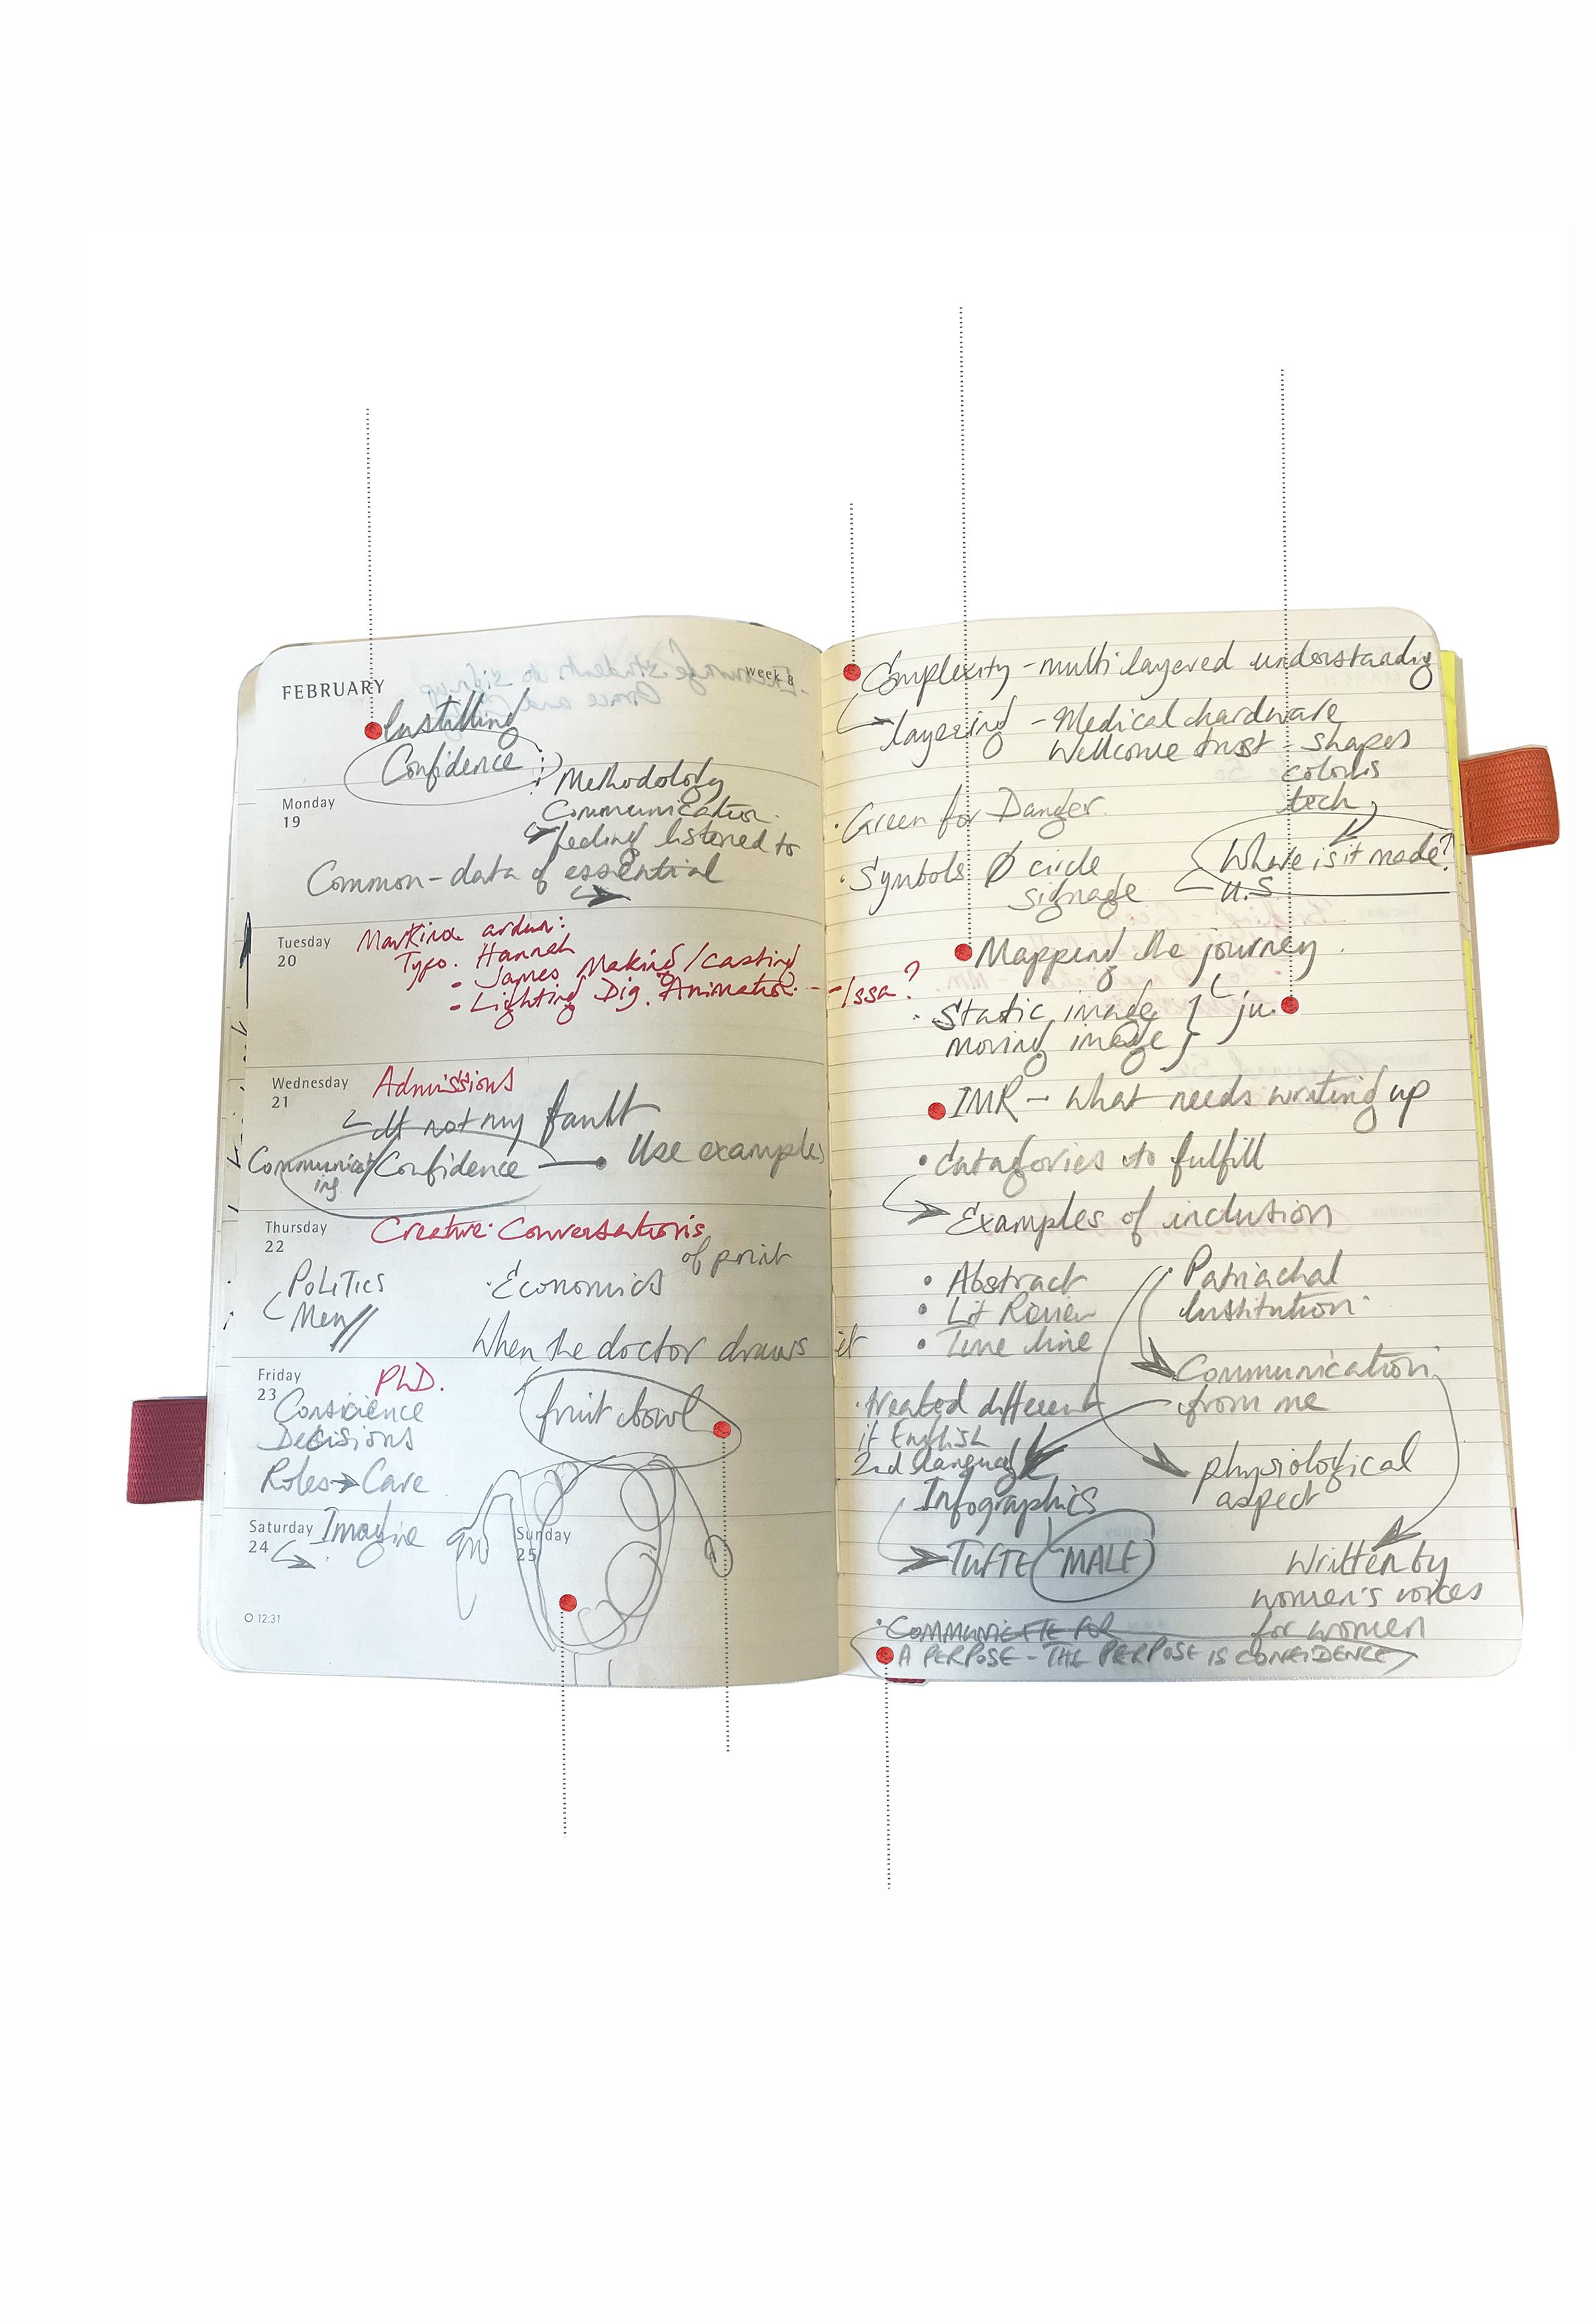 FEBRUARY
week 8
Instilling
Confidence
Methodology
Communication
feeling listened to
Monday
19
Common-data of essential
Tuesday
20
Marking
Typo. Hannah
• James Making/casting
• Lighting Dig. Animation - - Issa?
Wednesday
21
Admissions
It not my fault
Communicat/Confidence
ing
Use examples
Thursday
22
Creative Conversations
of print
POLITICS
Men//
• Economics
When the doctor draws it
Friday
23
PhD.
Consicience
Decisions
Roles → Care
fruit bowl
Saturday
24
Imagine
Sunday
25
12:31
Complexity - multi layered understanding
layering - Medical hardware
Wellcome trust - shapes
colours
tech
• Green for Danger
• Symbols Ø circle
signage
Where is it made?
U.S.
Mapping the journey
• Static image } ju.
moving image }
IMR - what needs writing up
• Catagories to fulfill
Examples of inclusion
• Abstract
• Lit Review
• Time line
• Patriachal
Institution
Communication
from me
• treated different
if English
2nd language
physiological
aspect
Infographics
TUFTE (MALE)
Written by
women's voices
for women
• COMMUNICATE FOR
A PERPOSE - THE PERPOSE IS CONFIDENCE